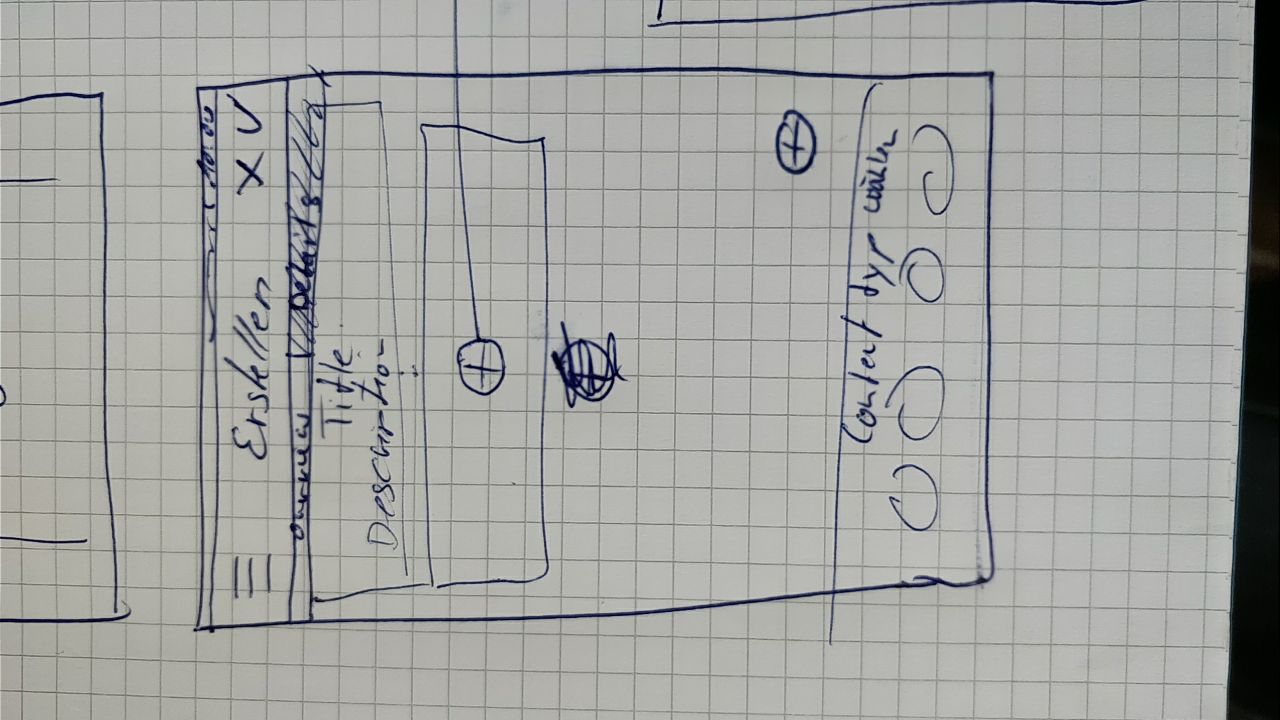 10:00
Erstellen X
Overview Details
Title
Description
Content typ wählen